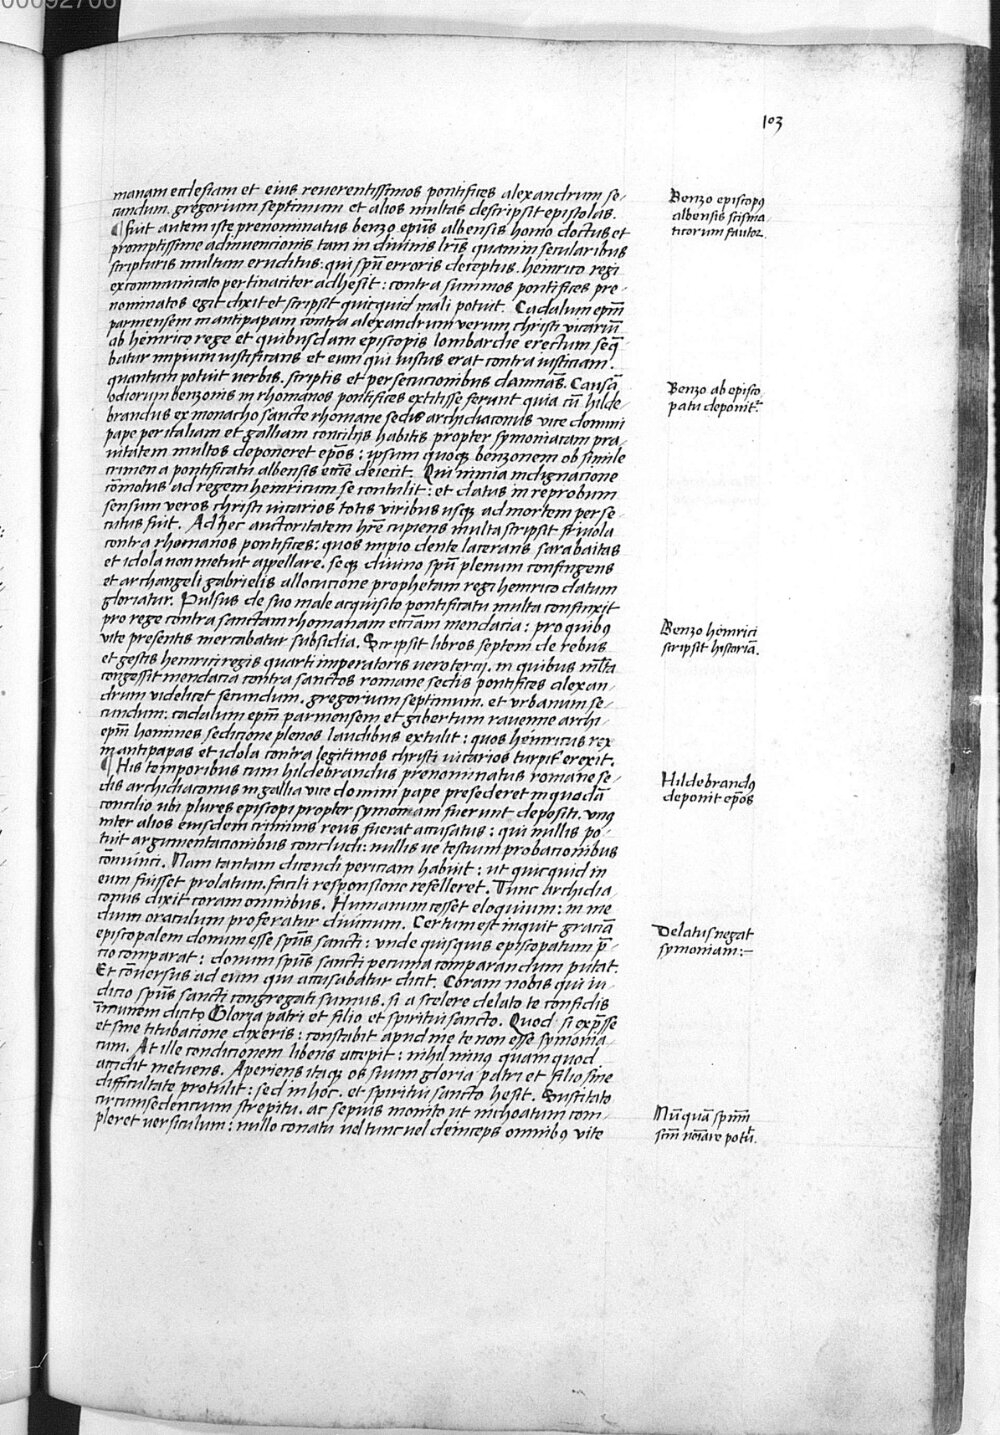 00092706
103
manam ecclesiam et eius reuerentissimos pontifices alexandrum se-
cundum. gregorium septimum et alios multas descripsit epistolas.
¶ Fuit autem iste prenominatus benzo ep̄us albensis homo doctus et
promptissime adinuencionis tam in diuinis lr̄is quam in secularibus
scripturis multum eruditus: qui sp̄u erroris deceptus. heinrico regi
excommunicato pertinaciter adhesit: contra summos pontifices pre-
nominatos egit dixit et scripsit quicquid mali potuit. Cadalum ep̄m
parmensem in antipapam contra alexandrum verum christi vicariū
ab heinrico rege et quibusdam episcopis lombardie erectum seq̄-
batur impium iustificans et eum qui iustus erat contra iusticiam.
quantum potuit uerbis. scriptis et persecucionibus damnās. Causā
odiorum benzonis in rhomanos pontifices extitisse ferunt quia cū hilde-
brandus ex monacho sancte rhomane sedis archidiaconus vice domini
pape per italiam et galliam concilijs habitis propter symoniacam pra-
uitatem multos deponeret ep̄os: ipsum quoqꝫ benzonem ob simile
crimen a pontificatu albensis ecc̄ie deiecit. Qui nimia indignacione
cōmotus ad regem heinricum se contulit: et datus in reprobum
sensum veros christi uicarios totis viribus usqꝫ ad mortem perse-
cutus fuit. Ad hec auctoritatem hr̄e cupiens multa scripsit friuola
contra rhomanos pontifices: quos impio dente lacerans sarabaitas
et idola non metuit appellare. seqꝫ diuino sp̄u plenum confingens
et archangeli gabrielis allocucione prophetam regi heinrico datum
gloriatur. Pulsus de suo male acquisito pontificatu multa confinxit
pro rege contra sanctam rhomanam ecciam mendacia: pro quibꝯ
vite presentis mercabatur subsidia. Scripsit libros septem de rebus
et gestis heinrici regis quarti imperatoris uero tercij. in quibus ml̄ta
congessit mendacia contra sanctos romane sedis pontifices alexan-
drum videlicet secundum. gregorium septimum. et vrbanum se-
cundum: cadalum ep̄m parmensem et gibertum rauenne archi-
ep̄m homines sedicione plenos laudibus extulit: quos heinricus rex
in antipapas et idola contra legitimos christi uicarios turpit̄ erexit.
¶ His temporibus cum hildebrandus prenominatus romane se-
dis archidiaconus in gallia vice domini pape presederet in quodā
concilio ubi plures episcopi propter symoniam fuerunt depositi. vnꝯ
inter alios eiusdem criminis reus fuerat accusatus: qui nullis po-
tuit argumentacionibus concludi: nullis ue testium probacionibus
cōuinci. Nam tantam dicendi periciam habuit: ut quicquid in
eum fuisset prolatum. facili responsione refelleret. Tunc archidia-
conus dixit coram omnibus. Humanum cesset eloquium: in me
dium oraculum proferatur diuinum. Certum est inquit graciā
episcopalem donum esse sp̄us sancti: vnde quisquis episcopatum p̄-
cio comparat: donum sp̄us sancti pecunia comparandum putat.
Et cōuersus ad eum qui accusabatur dicit. Coram nobis qui iu-
dicio sp̄us sancti congregati sumus. si a scelere delato te confidis
īmunem dicito Gloria patri et filio et spiritui sancto. Quod si exp̄sse
et sine titubacione dixeris: constabit apud me te non esse symonia-
cum. At ille condicionem libens accepit: nihil minꝯ quam quod
accidit metuens. Aperiens itaqꝫ os suum gloria patri et filio sine
difficultate protulit: sed in hoc. et spiritui sancto hesit. Suscitato
circumsedencium strepitu. ac sepius monito ut inchoatum com-
pleret versiculum: nullo conatu uel tunc uel deinceps omnibꝯ vite
Benzo episcopꝯ
albensis scisma-
ticorum fautor.
Benzo ab episco-
patu deponit̄.
Benzo heinrici
scripsit historiā.
Hildebrandꝯ
deponit ep̄os
Delatus negat
symoniam:-
Nūquā sp̄um
sc̄m noīare potuit.